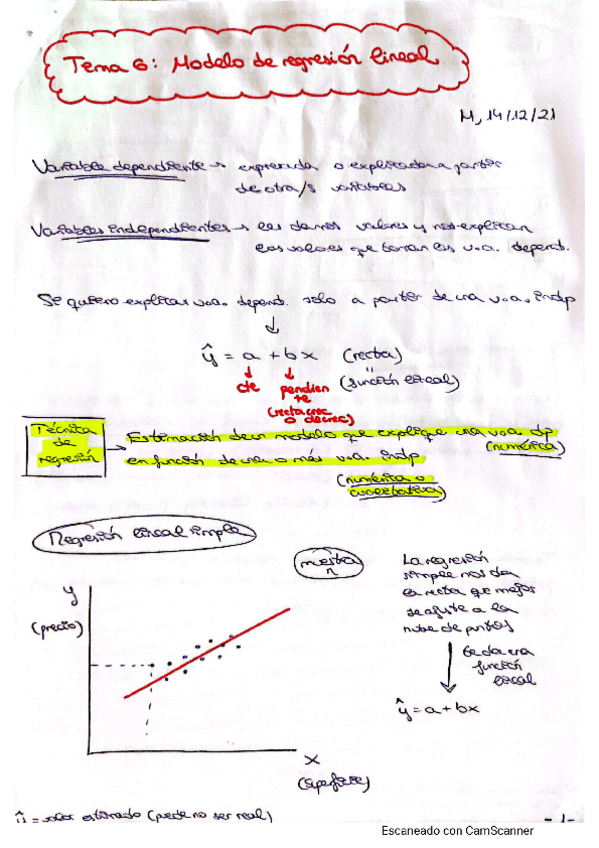 Tema 6: Modelo de regresión lineal
M, 14/12/21
Variable dependiente → expresada o explicada a partir
de otra/s variables
Variables independientes → les damos valores y nos explican
los valores que toman las v.a. depend.
Se quiero explicar va. depend. solo a partir de una v.a. indp
↓
ŷ = a + bx (recta)
(función lineal)
pendien
te
(recta crec
o decrec)
Técnica
de
regresión
→ Estimación de un modelo que explique una va. dp
(numérica)
en función de una o más va. indp
(numérica o
cualitativa)
Regresión lineal simple
muestra
n
La regresión
simple nos da
la recta que mejor
se ajuste a la
nube de puntos
te da una
función
lineal
ŷ = a + bx
y
(precio)
x
(superficie)
ŷ = valor estimado (puede no ser real)
-1-
Escaneado con CamScanner